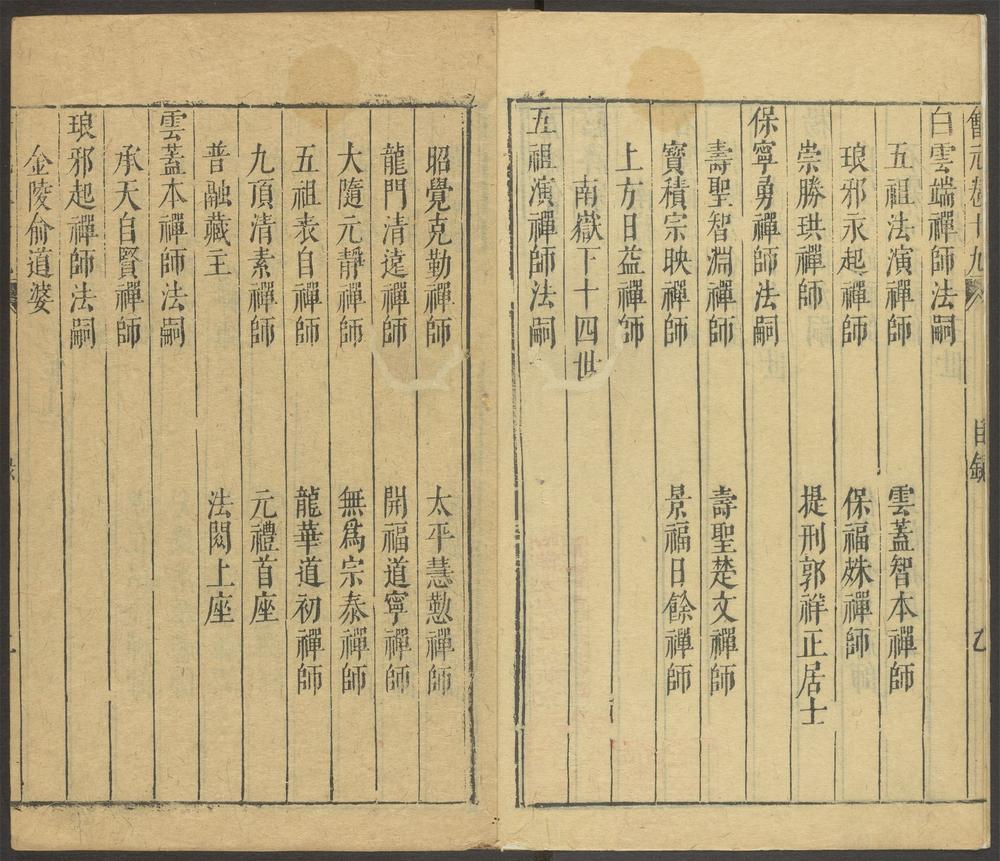 會元卷十九 目錄
白雲端禪師法嗣
五祖法演禪師 雲蓋智本禪師
琅邪永起禪師 保福姝禪師
崇勝珙禪師 提刑郭祥正居士
保寧勇禪師法嗣
壽聖智淵禪師 壽聖楚文禪師
寶積宗映禪師 景福日餘禪師
上方日益禪師
南嶽下十四世
五祖演禪師法嗣
昭覺克勤禪師 太平慧懃禪師
龍門清遠禪師 開福道寧禪師
大隨元靜禪師 無為宗泰禪師
五祖表自禪師 龍華道初禪師
九頂清素禪師 元禮首座
普融藏主 法閦上座
雲蓋本禪師法嗣
承天自賢禪師
琅邪起禪師法嗣
金陵俞道婆